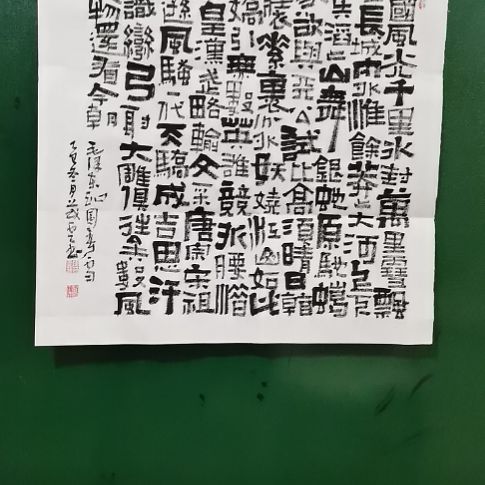 國風光千里冰封萬里雪飄
長城内外惟餘莽莽大河上下
滔滔山舞銀蛇原馳蠟
欲與天公試比高須晴日看
裝素裹分外妖嬈江山如此
嬌引無數英雄競折腰惜
皇漢武略輸文采唐宗宋祖
遜風騷一代天驕成吉思汗
識彎弓射大雕俱往矣數風
物還看今朝
毛澤東沁園春